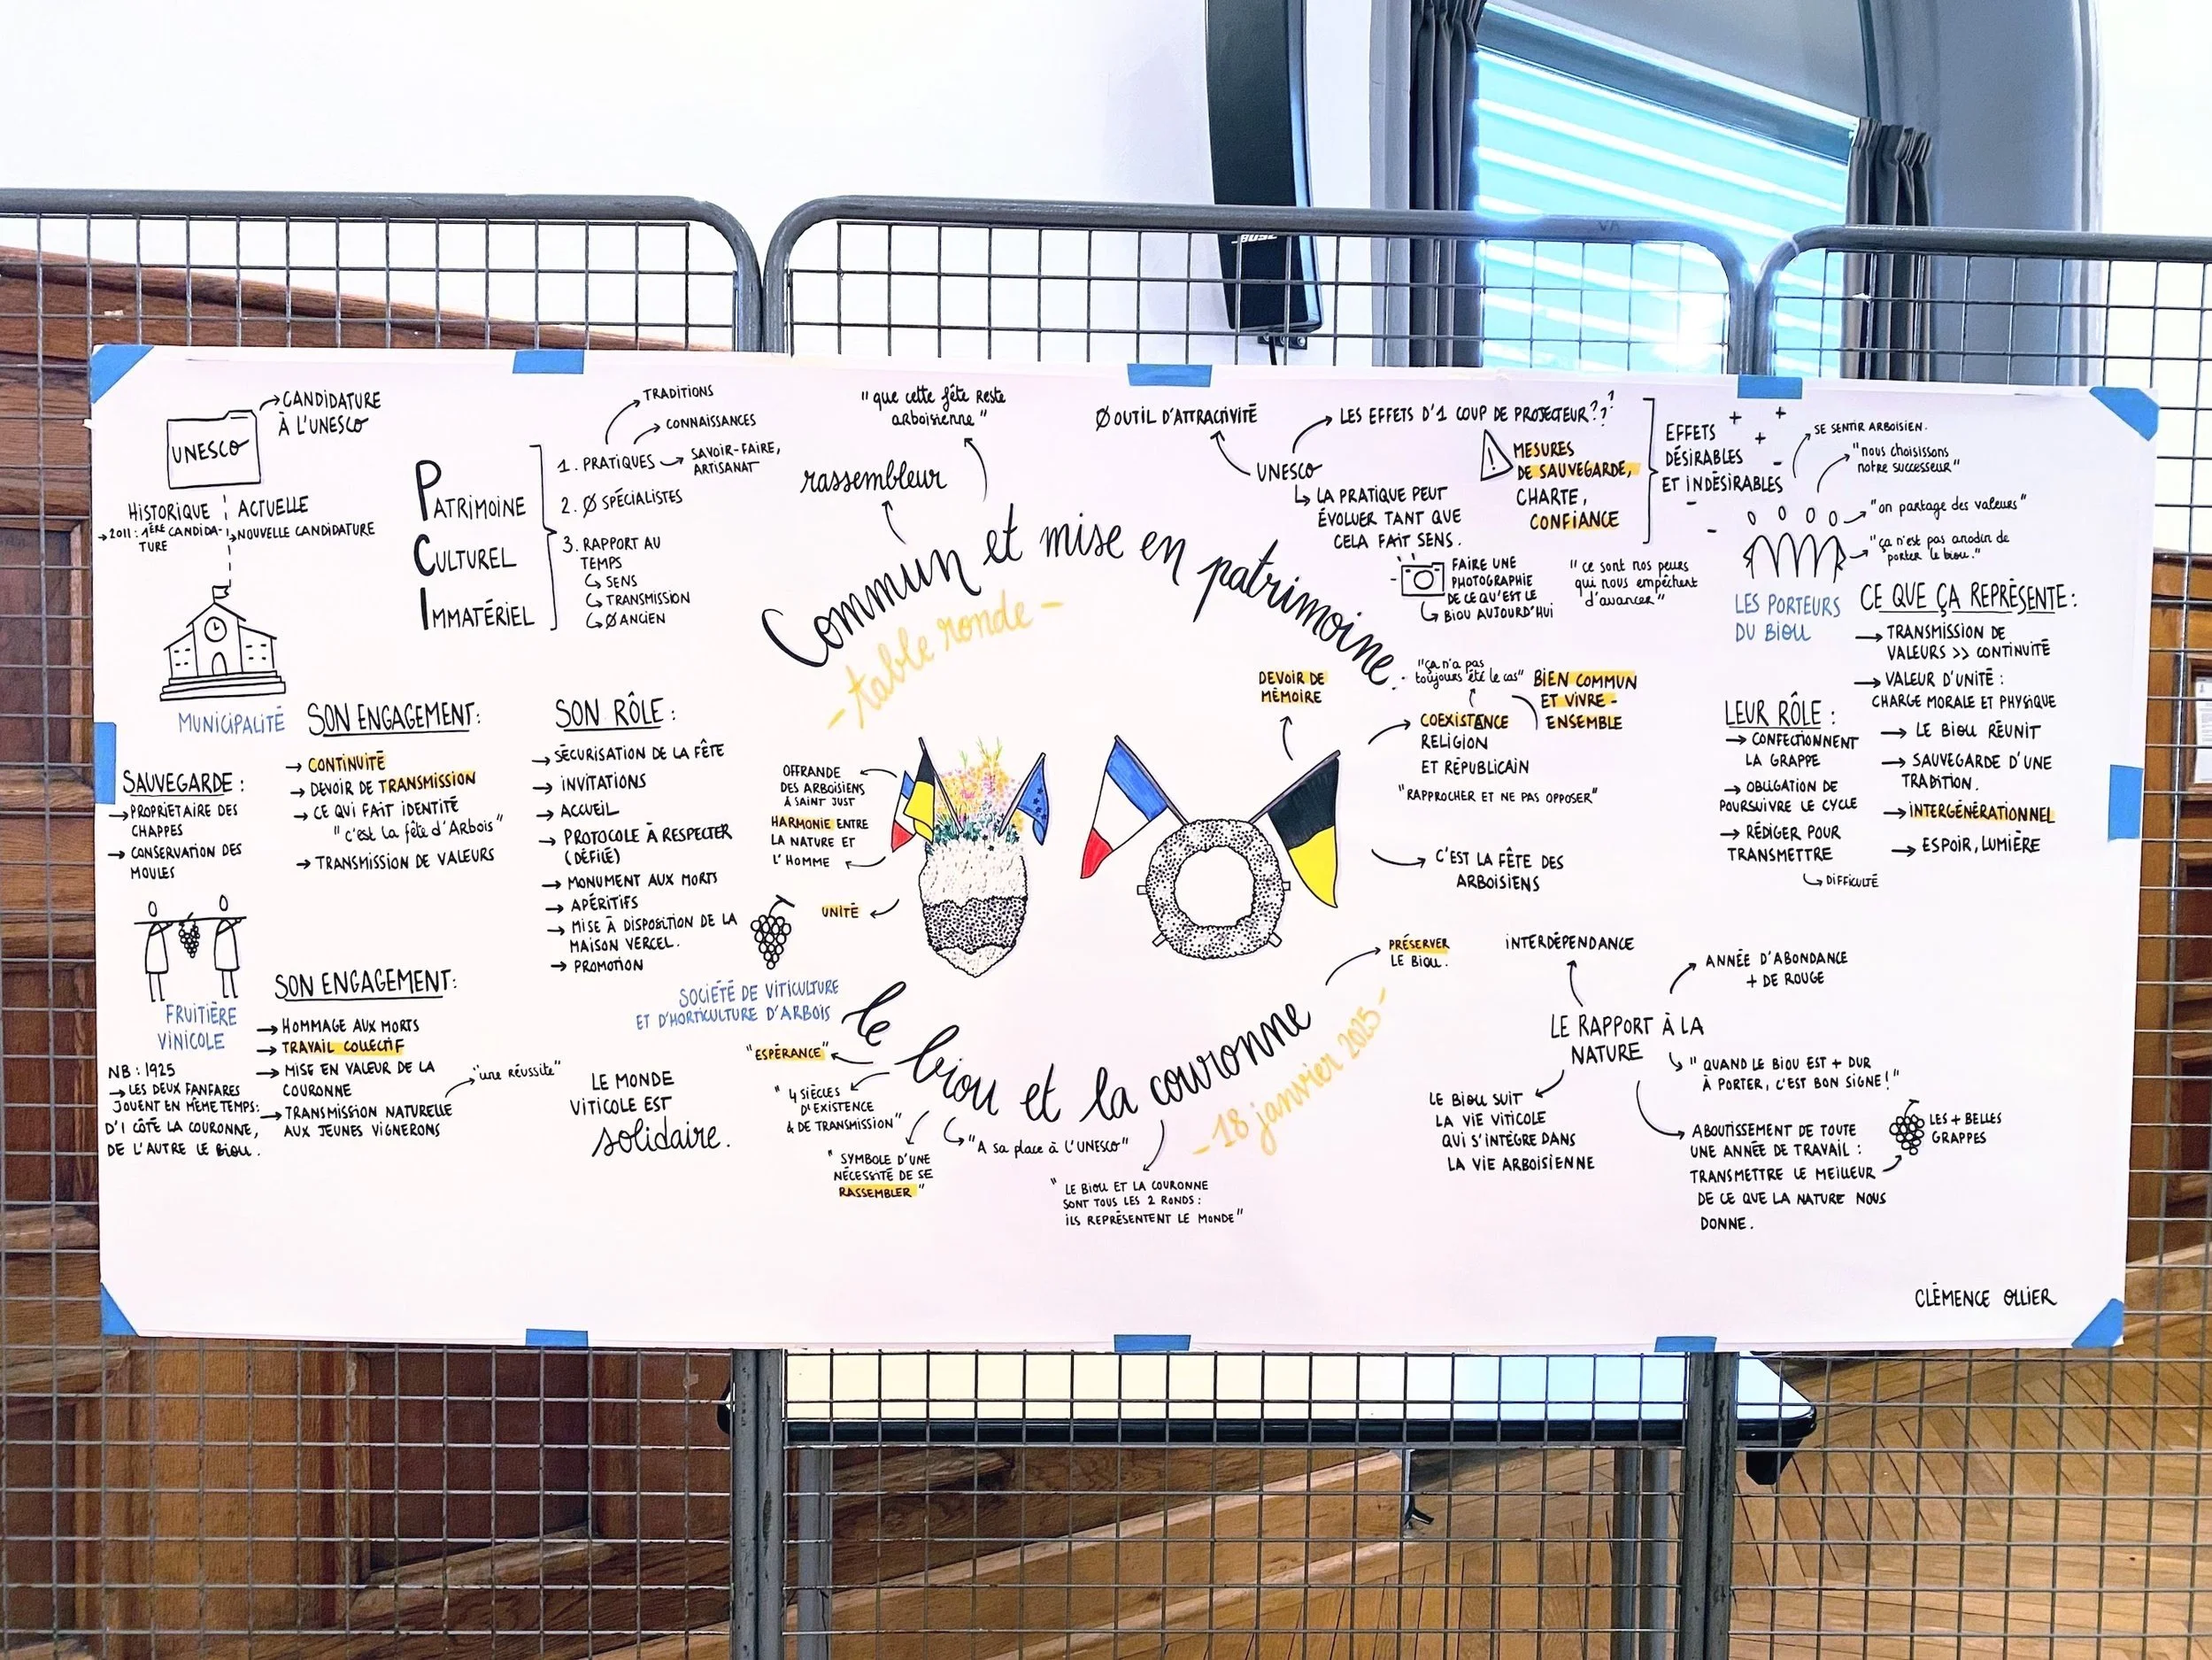 BOSE
CANDIDATURE
À L'UNESCO
UNESCO
HISTORIQUE
→ 2011 : 1ÈRE CANDIDA-
TURE
ACTUELLE
NOUVELLE CANDIDATURE
MUNICIPALITÉ
SAUVEGARDE :
→ PROPRIÉTAIRE DES
CHAPPES
→ CONSERVATION DES
MOULES
SON ENGAGEMENT :
→ CONTINUITÉ
→ DEVOIR DE TRANSMISSION
→ CE QUI FAIT IDENTITÉ
"c'est la fête d'Arbois"
→ TRANSMISSION DE VALEURS
SON RÔLE :
→ SÉCURISATION DE LA FÊTE
→ INVITATIONS
→ ACCUEIL
→ PROTOCOLE À RESPECTER
(DÉFILÉ)
→ MONUMENT AUX MORTS
→ APÉRITIFS
→ MISE À DISPOSITION DE LA
MAISON VERCEL.
→ PROMOTION
PATRIMOINE
CULTUREL
IMMATÉRIEL
1. PRATIQUES
TRADITIONS
CONNAISSANCES
SAVOIR-FAIRE,
ARTISANAT
2. Ø SPÉCIALISTES
3. RAPPORT AU
TEMPS
SENS
TRANSMISSION
Ø ANCIEN
FRUITIÈRE
VINICOLE
NB : 1925
→ LES DEUX FANFARES
JOUENT EN MÊME TEMPS :
D'1 CÔTÉ LA COURONNE,
DE L'AUTRE LE BIOU.
SON ENGAGEMENT :
→ HOMMAGE AUX MORTS
→ TRAVAIL COLLECTIF
→ MISE EN VALEUR DE LA
COURONNE
→ TRANSMISSION NATURELLE
AUX JEUNES VIGNERONS
"une réussite"
LE MONDE
VITICOLE EST
solidaire.
SOCIÉTÉ DE VITICULTURE
ET D'HORTICULTURE D'ARBOIS
"que cette fête reste
arboisienne"
rassembleur
Commun et mise en patrimoine
- table ronde -
OFFRANDE
DES ARBOISIENS
À SAINT JUST
HARMONIE ENTRE
LA NATURE ET
L'HOMME
UNITÉ
DEVOIR DE
MÉMOIRE
COEXISTENCE
RELIGION
ET RÉPUBLICAIN
"ça n'a pas
toujours été le cas"
BIEN COMMUN
ET VIVRE-
ENSEMBLE
"RAPPROCHER ET NE PAS OPPOSER"
C'EST LA FÊTE DES
ARBOISIENS
PRÉSERVER
LE BIOU.
le biou et la couronne
- 18 janvier 2025 -
"ESPÉRANCE"
"4 SIÈCLES
D'EXISTENCE
& DE TRANSMISSION"
"SYMBOLE D'UNE
NÉCESSITÉ DE SE
RASSEMBLER"
"A sa place à L'UNESCO"
"LE BIOU ET LA COURONNE
SONT TOUS LES 2 RONDS :
ILS REPRÉSENTENT LE MONDE"
Ø OUTIL D'ATTRACTIVITÉ
UNESCO
LES EFFETS D'1 COUP DE PROJECTEUR???
LA PRATIQUE PEUT
ÉVOLUER TANT QUE
CELA FAIT SENS.
! MESURES
DE SAUVEGARDE,
CHARTE,
CONFIANCE
EFFETS
DÉSIRABLES
ET INDÉSIRABLES
+ + +
- - -
FAIRE UNE
PHOTOGRAPHIE
DE CE QU'EST LE
BIOU AUJOURD'HUI
"ce sont nos peurs
qui nous empêchent
d'avancer"
SE SENTIR ARBOISIEN.
"nous choisissons
notre successeur"
"on partage des valeurs"
"ça n'est pas anodin de
porter le biou."
LES PORTEURS
DU BIOU
CE QUE ÇA REPRÉSENTE :
→ TRANSMISSION DE
VALEURS >> CONTINUITÉ
→ VALEUR D'UNITÉ :
CHARGE MORALE ET PHYSIQUE
→ LE BIOU RÉUNIT
→ SAUVEGARDE D'UNE
TRADITION.
→ INTERGÉNÉRATIONNEL
→ ESPOIR, LUMIÈRE
LEUR RÔLE :
→ CONFECTIONNENT
LA GRAPPE
→ OBLIGATION DE
POURSUIVRE LE CYCLE
→ RÉDIGER POUR
TRANSMETTRE
DIFFICULTÉ
INTERDÉPENDANCE
ANNÉE D'ABONDANCE
+ DE ROUGE
LE RAPPORT À LA
NATURE
"QUAND LE BIOU EST + DUR
À PORTER, C'EST BON SIGNE!"
LE BIOU SUIT
LA VIE VITICOLE
QUI S'INTÈGRE DANS
LA VIE ARBOISIENNE
ABOUTISSEMENT DE TOUTE
UNE ANNÉE DE TRAVAIL :
TRANSMETTRE LE MEILLEUR
DE CE QUE LA NATURE NOUS
DONNE.
LES + BELLES
GRAPPES
CLÉMENCE OLLIER